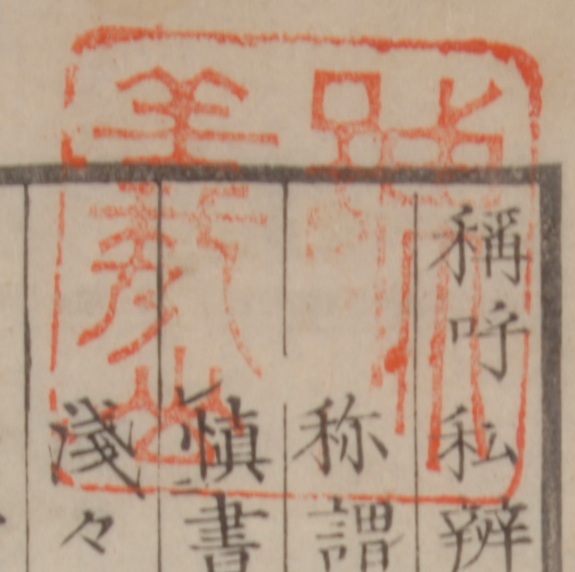 稱呼私辨
称謂
慎書
淺々